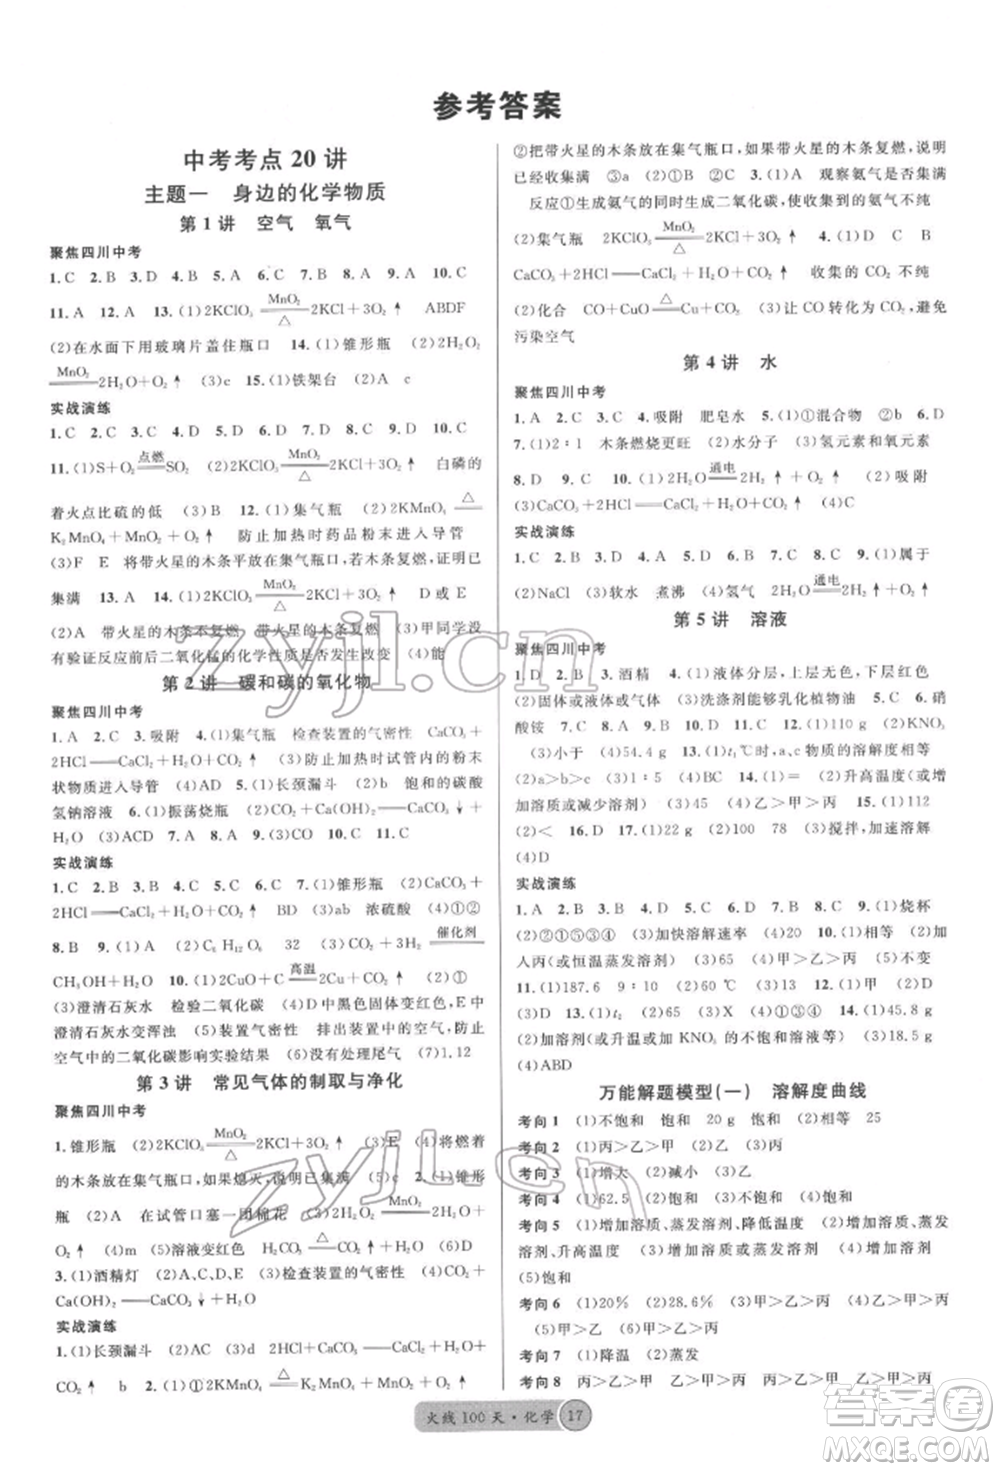 参考答案
中考考点 20 讲
主题一 身边的化学物质
第 1 讲 空气 氧气
聚焦四川中考
1. C 2. B 3. D 4. B 5. A 6. C 7. B 8. A 9. A 10. C
11. A 12. A 13. (1)2KClO₃ =MnO₂/△= 2KCl+3O₂↑ ABDF
(2)在水面下用玻璃片盖住瓶口 14. (1)锥形瓶 (2)2H₂O₂
=MnO₂= 2H₂O+O₂↑ (3)c 15. (1)铁架台 (2)A c
实战演练
1. C 2. C 3. B 4. D 5. D 6. A 7. C 8. B 9. C 10. D
11. (1)S+O₂ =点燃= SO₂ (2)2KClO₃ =MnO₂/△= 2KCl+3O₂↑ 白磷的
着火点比硫的低 (3)B 12. (1)集气瓶 (2)2KMnO₄ =△=
K₂MnO₄+MnO₂+O₂↑ 防止加热时药品粉末进入导管
(3)F E 将带火星的木条平放在集气瓶口,若木条复燃,证明已
集满 13. A 14. (1)2KClO₃ =MnO₂/△= 2KCl+3O₂↑ D或E
(2)A 带火星的木条不复燃 带火星的木条复燃 (3)甲同学
没有验证反应前后二氧化锰的化学性质是否发生改变 (4)能
第 2 讲 碳和碳的氧化物
聚焦四川中考
1. A 2. C 3. 吸附 4. (1)集气瓶 检查装置的气密性 CaCO₃+
2HCl=CaCl₂+H₂O+CO₂↑ (3)防止加热时试管中的粉末
状物质进入导管 (4)AD 5. (1)长颈漏斗 (2)c 饱和的碳酸
氢钠溶液 6. (1)振荡烧瓶 (2)CaCO₃+2HCl=CaCl₂+
H₂O (3)ACD 7. A 8. A 9. (3)CO 10. D 11. C
实战演练
1. C 2. B 3. A 4. D 5. C 6. B 7. (1)锥形瓶 (2)CaCO₃+
2HCl=CaCl₂+H₂O+CO₂↑ BD (3)ab 浓硫酸 (4)①②
8. B 9. (1)A (2)C₅H₁₂O₂ 32 (3)CO₂+3H₂ =催化剂=
CH₃OH+H₂O 10. (1)2CuO+C =高温= 2Cu+CO₂↑ (2)①
(3)澄清石灰水 检验二氧化碳 (4)D中黑色固体变红色,E中
澄清石灰水变浑浊 (5)装置气密性 排出装置中的空气,防止
空气中的二氧化碳影响实验结果 (6)没有处理尾气 (7)1.12
第 3 讲 常见气体的制取与净化
聚焦四川中考
1. 锥形瓶 (2)2KClO₃ =MnO₂/△= 2KCl+3O₂↑ (3)B (4)将燃着
的木条放在集气瓶口,如果熄灭,说明已集满 (5)c 2. (1)锥形
瓶 (2)A 在试管口塞一团棉花 (3)2H₂O₂ =MnO₂= 2H₂O+
O₂↑ (4)m (5)溶液变红色
3. (1)酒精灯 (2)A、C、D、E (3)检查装置的气密性 (4)CO₂+
Ca(OH)₂=CaCO₃↓+H₂O
实战演练
1. (1)长颈漏斗 (2)A (3)d 2HCl+CaCO₃=CaCl₂+H₂O+
CO₂↑ b 2. (1)①2KMnO₄ =△= K₂MnO₄+MnO₂+O₂↑
②把带火星的木条放在集气瓶口,如果带火星的木条复燃,说明
已经收集满 ③a (2)①a ②b 观察氨气是否收集满
反应①生成氨气的同时生成二氧化碳,收集的氨气不纯
(2)集气瓶 2KClO₃ =MnO₂/△= 2KCl+3O₂↑ (3)2HCl+
CaCO₃=CaCl₂+H₂O+CO₂↑ 收集的 CO₂ 不纯
(2)化合 CO+CuO =△= Cu+CO₂ (3)让 CO 转化为 CO₂,避免
污染空气
第 4 讲 水
聚焦四川中考
1. A 2. B 3. C 4. 吸附 肥皂水 5. (1)①混合物 ②b 6. D
7. (1)2∶1 木条燃烧更旺 (2)水分子 (3)氢元素和氧元素
8. D 9. C 10. (1)2H₂O =通电= 2H₂↑+O₂↑ (2)吸附
(3)CaCO₃+2HCl=CaCl₂+H₂O+CO₂↑ (4)C
实战演练
1. C 2. C 3. A 4. B 5. D 6. D 7. B 8. C 9. (1)属于
(2)NaCl (3)软水 煮沸 (4)氢气 2H₂O =通电= 2H₂↑+O₂↑
第 5 讲 溶液
聚焦四川中考
1. D 2. A 3. 酒精 4. (1)液体分层,上层无色,下层红色
(2)固体或液体或气体 (3)洗涤剂能够乳化植物油 5. C 6. 硝
酸铵 7. C 8. A 9. D 10. A 11. D 12. (1)110 g (2)KNO₃
(3)小于 (4)54.4 g 13. (1)t₁℃时,a、c物质的溶解度相等
(2)a>b>c (3)1∶4 (4)BC 14. (1)乙 (2)升高温度(或
增加溶质或减少溶剂) (3)甲 (4)乙>甲>丙 15. (1)112
(2)< 16. D 17. (1)22 g (2)100 78 (3)搅拌,加速溶解
(4)D
实战演练
1. A 2. B 3. C 4. A 5. D 6. B 7. C 8. A 9. (1)烧杯
(2)②②⑤③ (3)加快溶解速率 (4)20 10. (1)相等 (2)加
入丙(或恒温蒸发溶剂) (3)甲 (4)甲>乙>丙 (5)不变
11. (1)187.6 9∶100 (2)60 ℃ (3)甲>乙>丙 12. D
13. D (3)(1)t₂ (2)65 (3)A ②③ 14. (1)45.8 g
(2)取少量,加入少量 KNO₃(不能继续溶解等) (3)18.7
(4)ABD
万能解题模型(一) 溶解度曲线
考向 1 (1)不饱和 饱和 20 g 饱和 (2)相等 25
考向 2 (1)丙>乙>甲 (2)甲>乙>丙 (3)丙
考向 3 (1)增大 (2)减小 (3)乙
考向 4 (1)62.5 (2)饱和 (3)不饱和 (4)饱和
考向 5 (1)增加溶质、蒸发溶剂、降低温度 (2)增加溶质、蒸发
溶剂、升高温度
(5)饱和
考向 6 (1)20% (2)28.6% (3)甲>乙>丙 (4)乙>甲>丙
(5)甲>乙>丙 (6)乙>甲>丙
考向 7 (1)降温 (2)蒸发
考向 8 丙>乙>甲 丙>乙>甲 甲>乙>丙 甲>乙>丙
火线 100 天·化学 17
zyjl.cn
zyjl.cn
答案圈
MXQE.COM